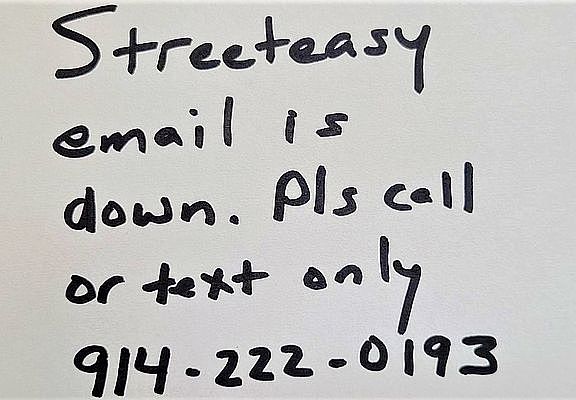 Streeteasy
email is
down. Pls call
or text only
914-222-0193